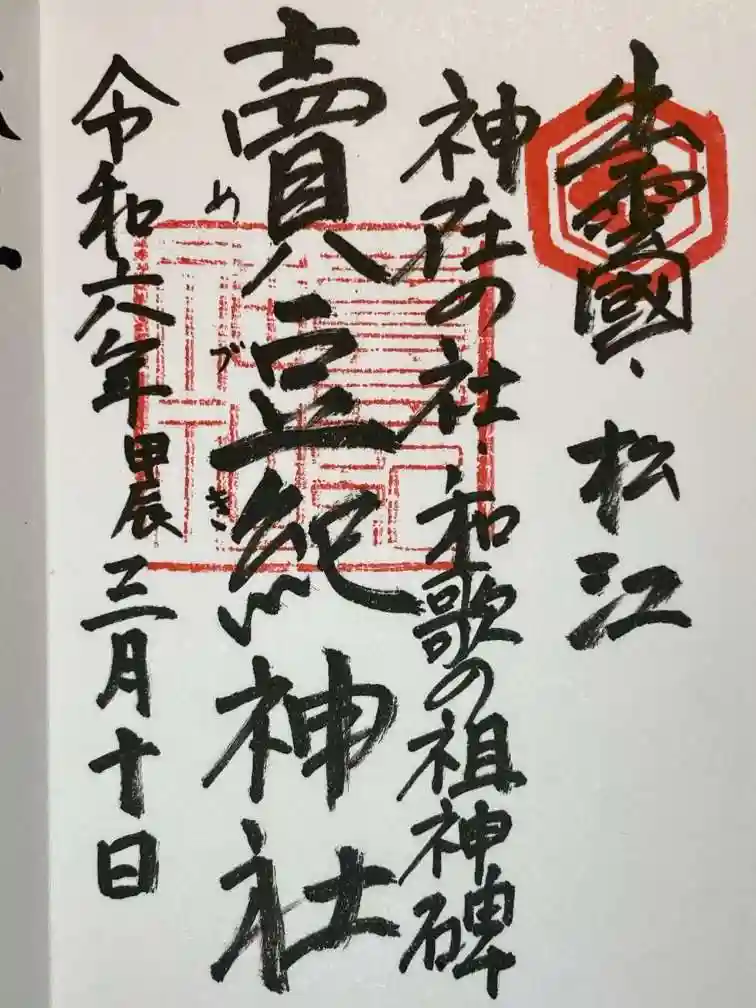 出雲國、松江
神在の社・和歌の祖神碑
賣豆紀神社
めづき
令和六年甲辰三月十日